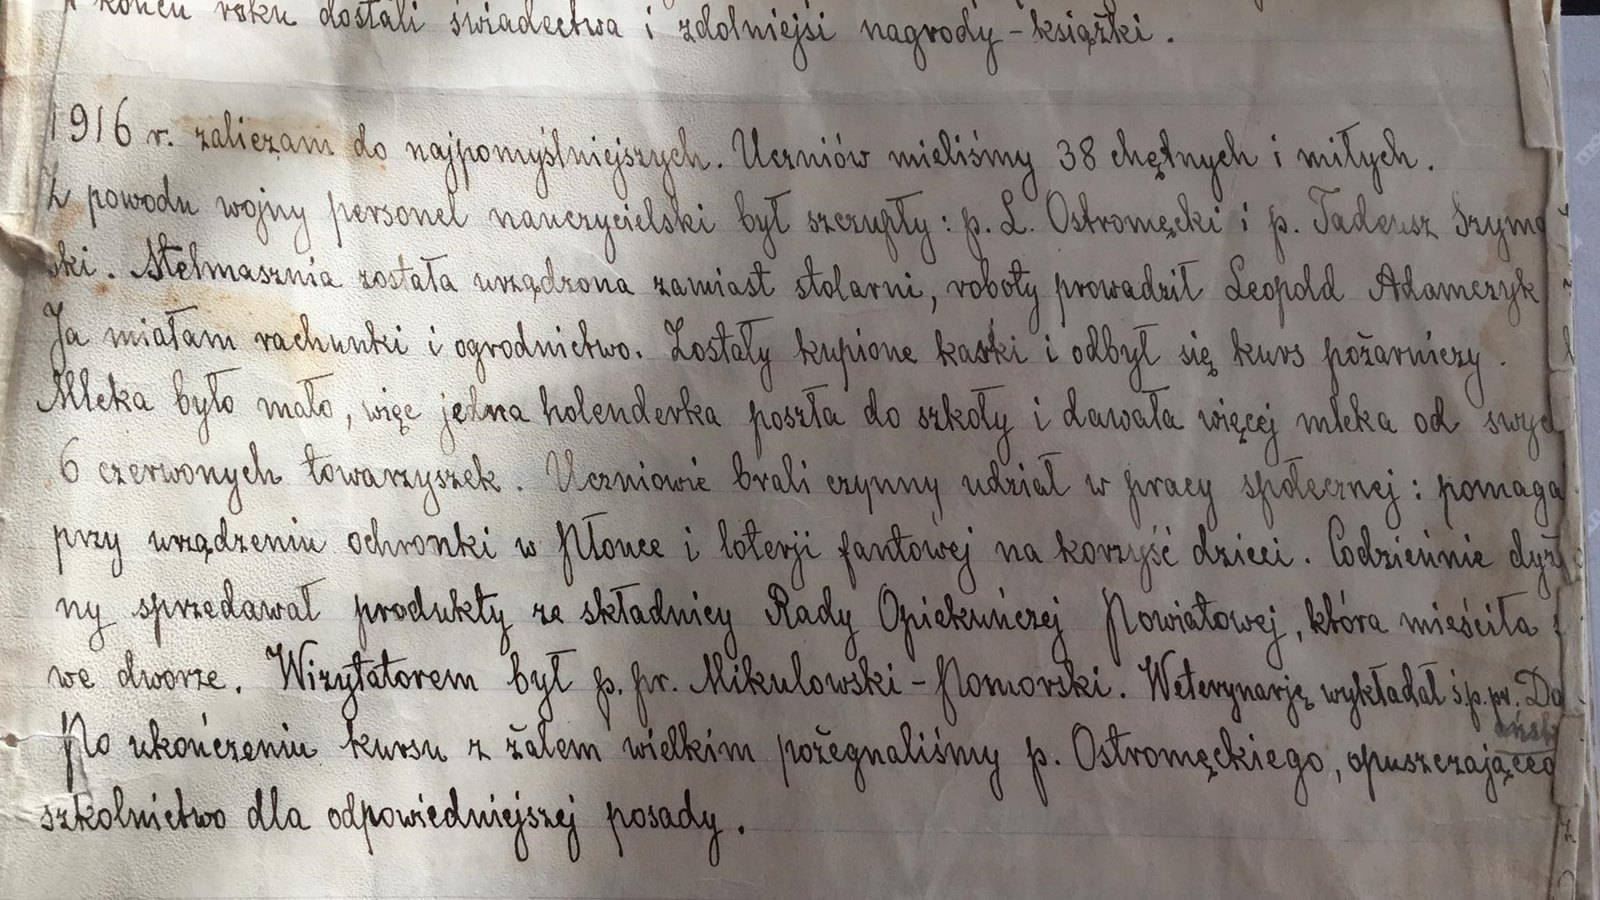 końcu roku dostali świadectwa i zdolniejsi nagrody - książki.
1916 r. zaliczam do najpomyślniejszych. Uczniów mieliśmy 38 chętnych i miłych.
Z powodu wojny personel nauczycielski był szczupły: p. L. Ostromęcki i p. Tadeusz Szymo
ski. Stelmasznia została urządzona zamiast stolarni, roboty prowadził Leopold Adamczyk
Ja miałam rachunki i ogrodnictwo. Zostały kupione kaski i odbył się kurs pożarniczy.
Mleka było mało, więc jedna holenderka poszła do szkoły i dawała więcej mleka od swych
6 czerwonych towarzyszek. Uczniowie brali czynny udział w pracy społecznej: pomaga
przy urządzeniu ochronki w Płonce i loterji fantowej na korzyść dzieci. Codziennie dyżu
ny sprzedawał produkty ze składnicy Rady Opiekuńczej Powiatowej, która mieściła
we dworze. Wizytatorem był p. pr. Mikulowski - Pomorski. Weterynarję wykładał ś.p. pr. Do
Po ukończeniu kursu z żalem wielkim pożegnaliśmy p. Ostromęckiego, opuszczającego
szkolnictwo dla odpowiedniejszej posady.